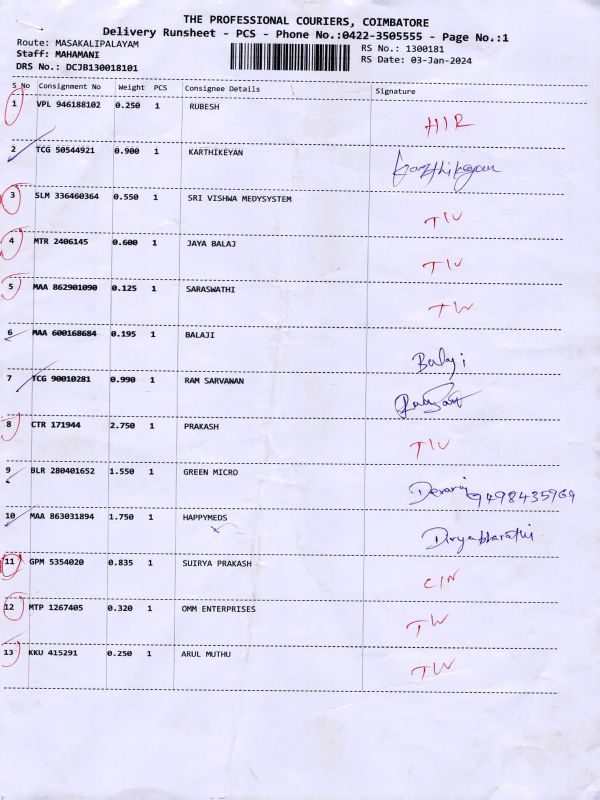 THE PROFESSIONAL COURIERS, COIMBATORE
Delivery Runsheet - PCS - Phone No.:0422-3505555 - Page No.:1
Route: MASAKALIPALAYAM
Staff: MAHAMANI
DRS No.: DCJB130018101
RS No.: 1300181
RS Date: 03-Jan-2024
S No Consignment No Weight PCS Consignee Details Signature
1 VPL 946188102 0.250 1 RUBESH
2 TCG 50544921 0.900 1 KARTHIKEYAN Karthikeyan
3 SLM 336460364 0.550 1 SRI VISHWA MEDYSYSTEM
4 MTR 2406145 0.600 1 JAYA BALAJ
5 MAA 862901090 0.125 1 SARASWATHI
6 MAA 600168684 0.195 1 BALAJI Balaji
7 TCG 90010281 0.990 1 RAM SARVANAN
8 CTR 171944 2.750 1 PRAKASH
9 BLR 280401652 1.550 1 GREEN MICRO Devaraj 9498435969
10 MAA 863031894 1.750 1 HAPPYMEDS Divyabharathi
11 GPM 5354020 0.835 1 SUIRYA PRAKASH
12 MTP 1267405 0.320 1 OMM ENTERPRISES
13 KKU 415291 0.250 1 ARUL MUTHU